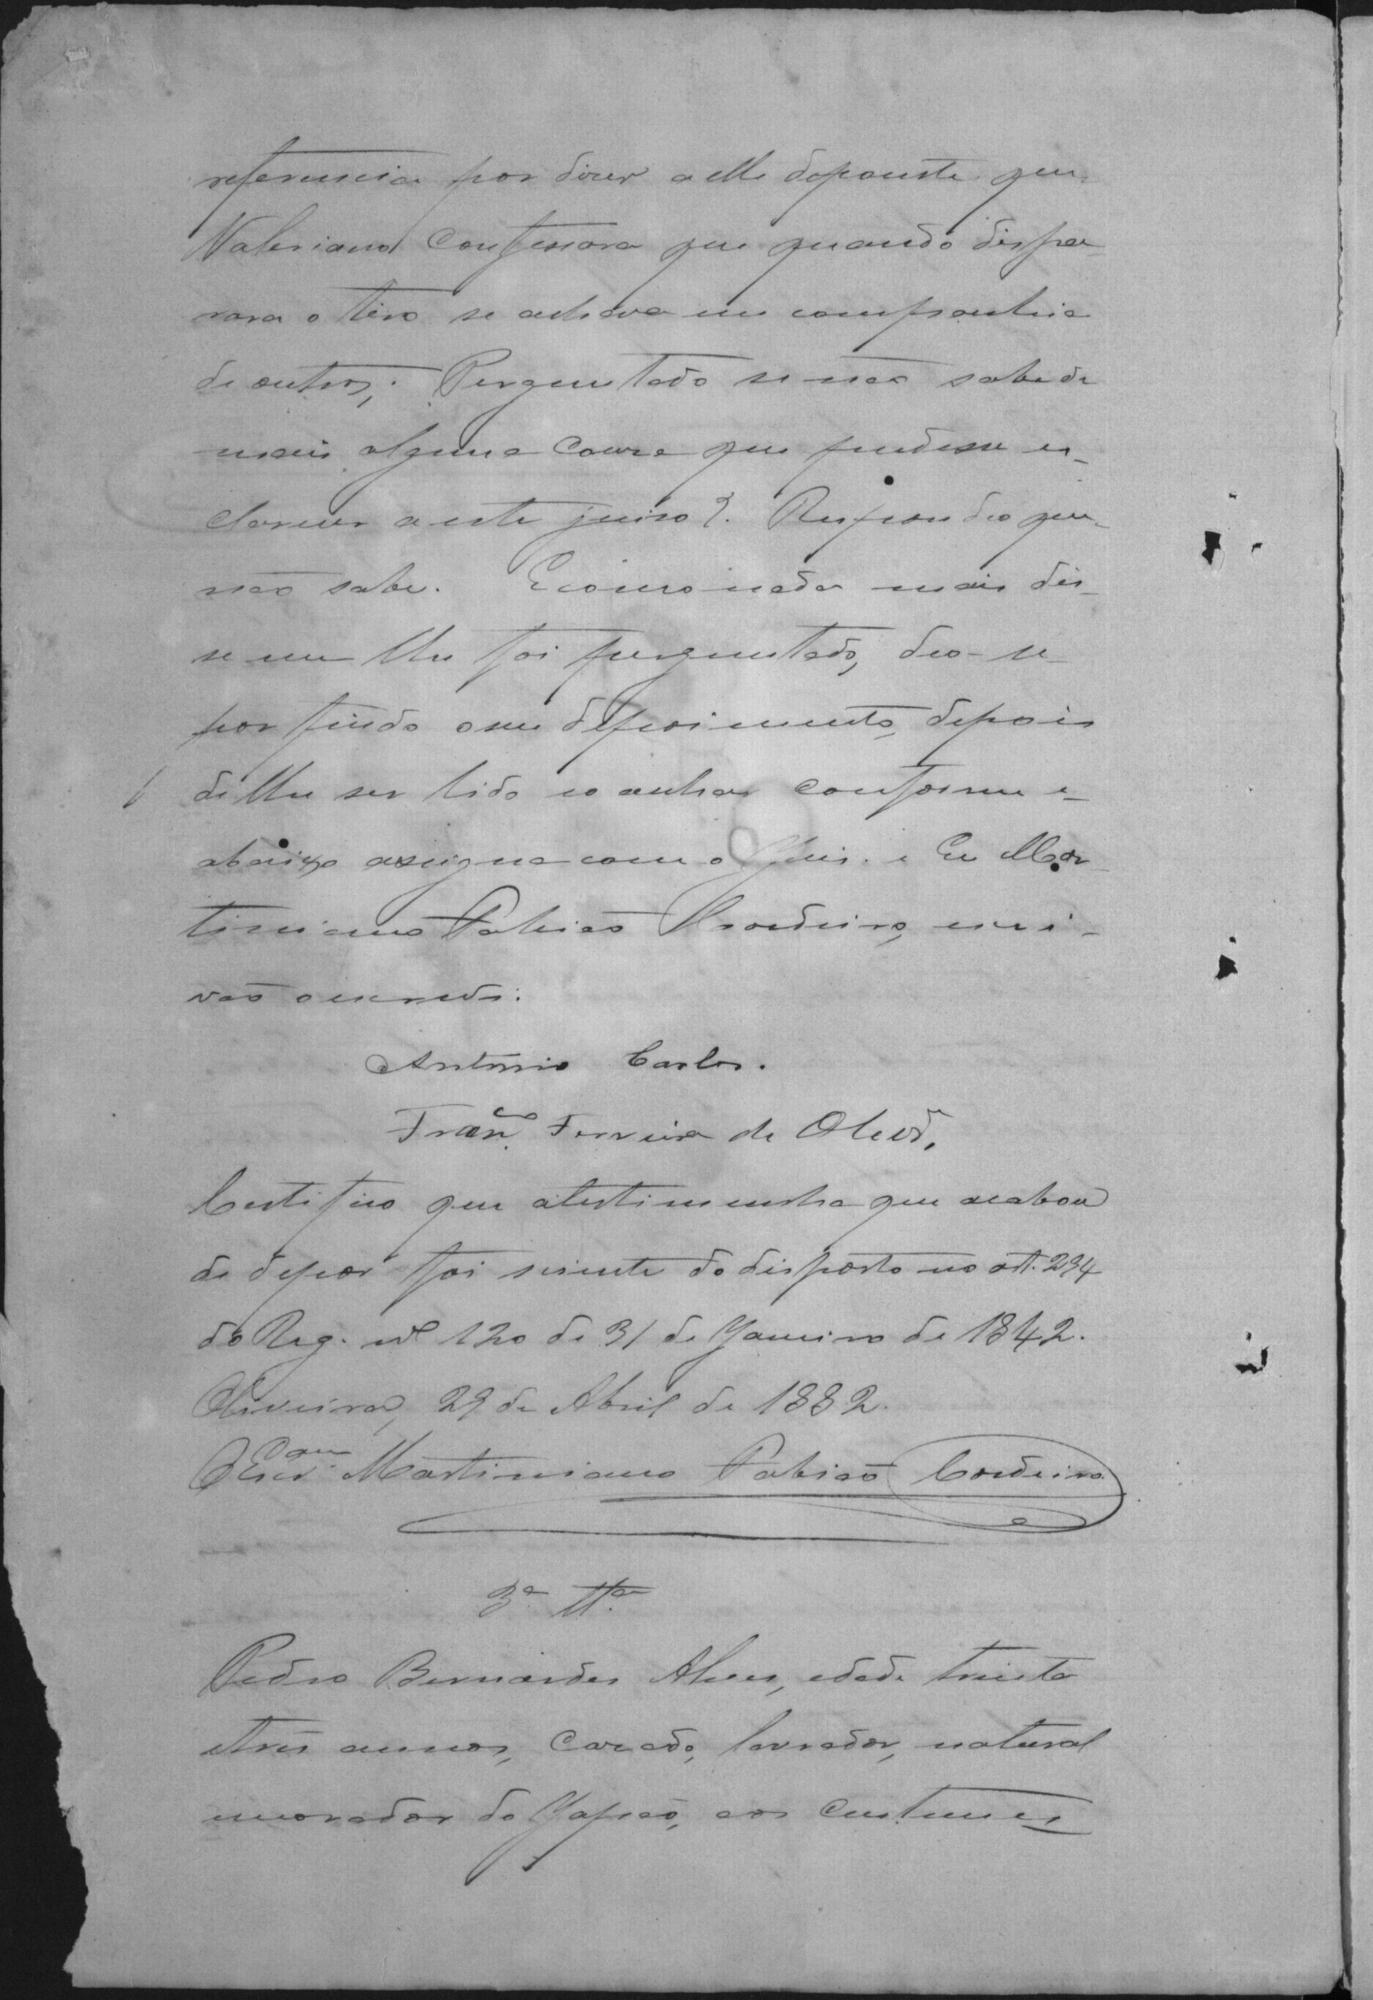 referencia por dizer a elle depoente que
Valeriano confessara que quando dispa-
rara o tiro se achava em companhia
de outros; Perguntado se não sabe de
mais alguma couza que pudesse es-
clarecer a este juizo? Respondeo que
não sabe. E como nada mais dis-
se nem lhe foi perguntado, deo-se
por findo o seu depoimento, depois
de lhe ser lido e o achar conforme e
abaixo assigna com o Juis. e Eu Mar-
timiano Fabião Cordeiro, escri-
vão o escrevi.
Antonio Carlos.
Franco. Ferreira de Olivª.
Certifico que a testimunha que acabou
de depor foi siente do disposto no art. 294
do Reg. nº 120 de 31 de Janeiro de 1842.
Oliveira, 29 de Abril de 1882.
O Escrivam Martimiano Fabião Cordeiro
3ª Ttª
Pedro Bernardes Alves, edade trinta
e tres annos, cazado, lavrador, natural
morador do Japão, aos custumes